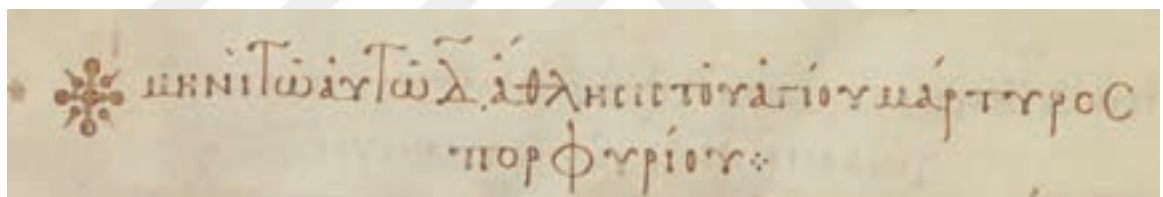 μηνὶ τῶ ἀυτῶ δ̅, ἄθλησις τοῦ ἁγίου μάρτυρος
πορφυρίου ⁘